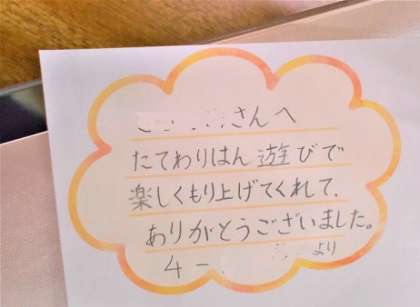 さんへ
たてわりはん遊びで
楽しくもり上げてくれて、
ありがとうございました。
4- より